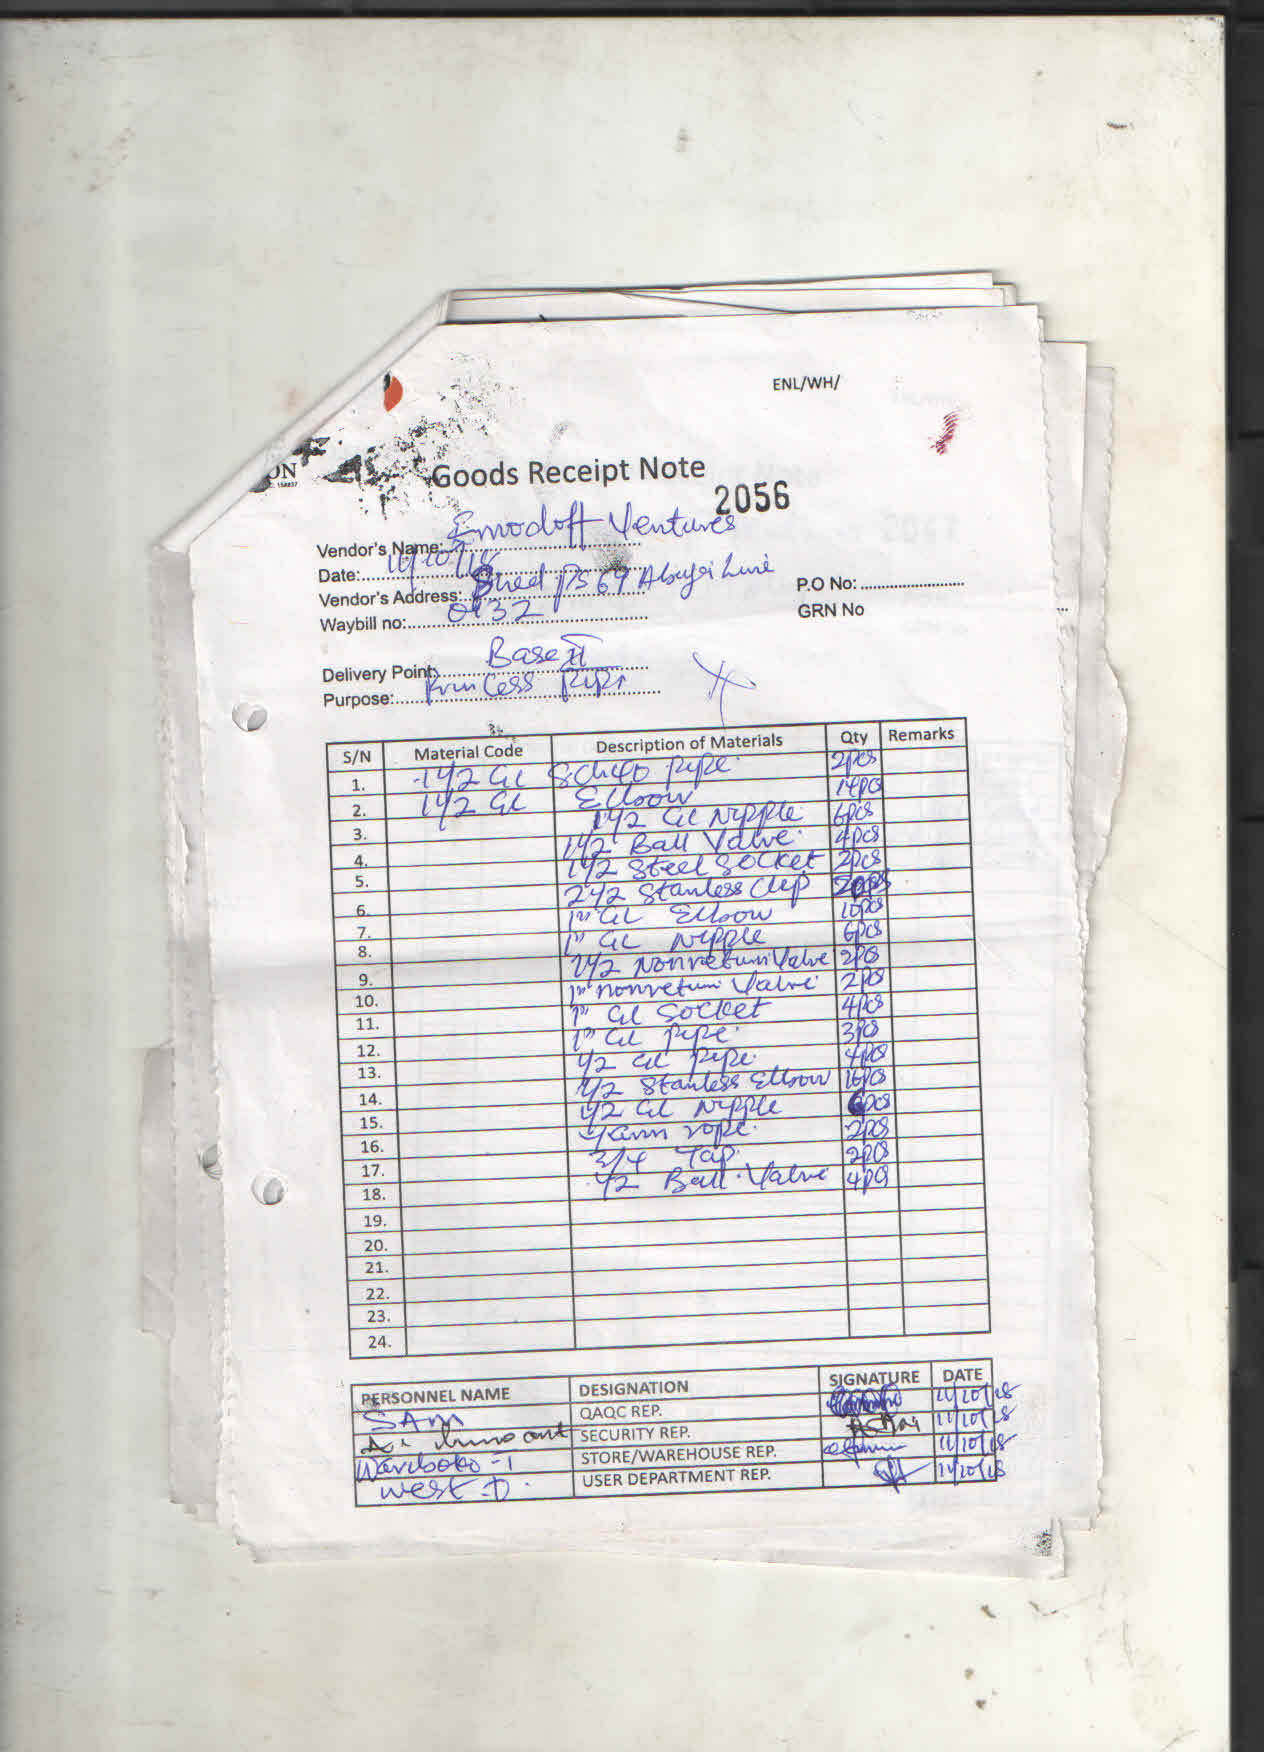 ENL/WH/
ON
Goods Receipt Note
2056
Vendor's Name: Emodoff Ventures
Date: 11/10/18
Vendor's Address: Shed PS 64 Abuja Line
P.O No:
Waybill no: 0132
GRN No
Delivery Point: Base II
Purpose: Princess
S/N Material Code Description of Materials Qty Remarks
1. 1 1/2 GL Sch40 pipe 2pcs
2. 1 1/2 GL Elbow 14pcs
3. 1 1/2 GL Nipple 6pcs
4. 1 1/2 Ball Valve 4pcs
5. 1 1/2 Steel Socket 2pcs
6. 2 1/2 Stanless Clip 20pcs
7. 1" GL Elbow 10pcs
8. 1" GL Nipple 6pcs
9. 1 1/2 Nonreturn Valve 2pcs
10. 1" nonreturn Valve 2pcs
11. 1" GL Socket 4pcs
12. 1" GL pipe 3pcs
13. 1/2 GL pipe 4pcs
14. 1/2 Stanless Elbow 16pcs
15. 1/2 GL Nipple 6pcs
16. Yarn rope 2pcs
17. 3/4 Tap 2pcs
18. 1/2 Ball Valve 4pcs
19.
20.
21.
22.
23.
24.
PERSONNEL NAME DESIGNATION SIGNATURE DATE
SAM QAQC REP. 11/10/18
SECURITY REP. 11/10/18
Wariboko - I STORE/WAREHOUSE REP. 11/10/18
West - D. USER DEPARTMENT REP. 11/10/18